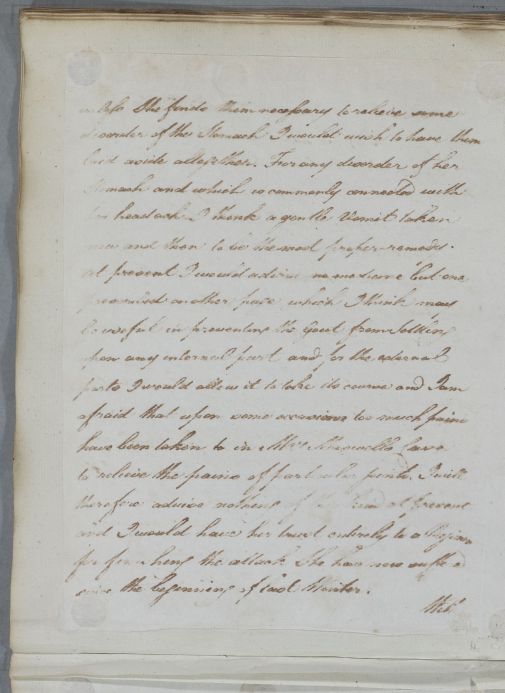 unless she finds them necessary to relieve some
disorder of the Stomach I would wish to have them
laid aside altogether. For any disorder of her
Stomach and which is commonly connected with
her headach I think a gentle Vomit taken
now and then to be the most proper remedy.
At present I would advise no medicine but one
prescribed another page which I think may
be useful in preventing the Gout from Settling
upon any internal part and for the external
parts I would allow it to take its course and I am
afraid that upon some occasions too much pains
have been taken to in Mrs case
to relieve the pains of particular joints. I will
therefore advise nothing of the kind at present
and I would have her trust entirely to a
for the attack She has now
since the beginning of last Winter.